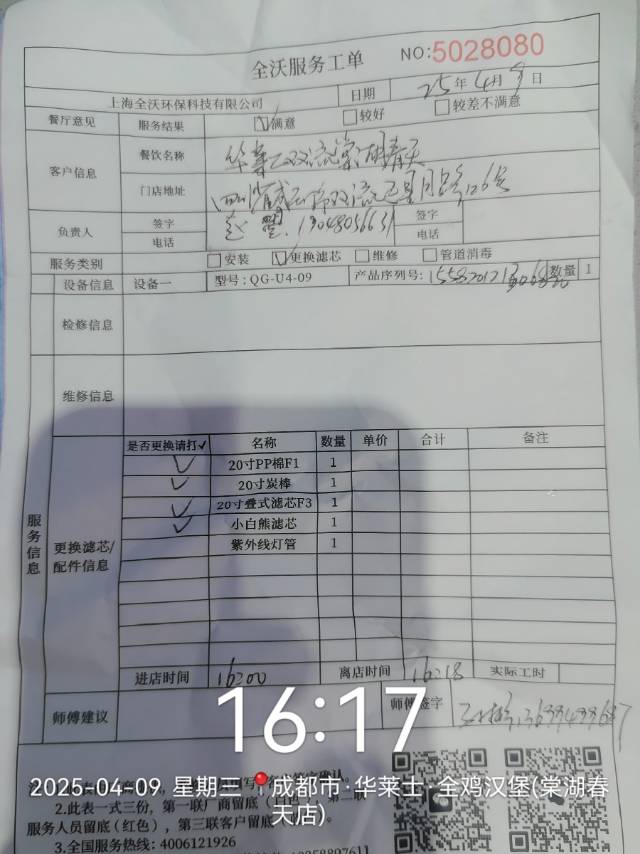 全沃服务工单 NO:5028080
上海全沃环保科技有限公司 日期 25年4月9日
餐厅意见 服务结果 ☑满意 □较好 □较差不满意
客户信息 餐饮名称 华莱士双流棠湖春天
门店地址
负责人 签字 签字
电话 13048056631 电话
服务类别 □安装 ☑更换滤芯 □维修 □管道消毒
设备信息 设备一 型号: QG-U4-09 产品序列号: 数量 1
检修信息
维修信息
服务信息
更换滤芯/配件信息
是否更换请打✓ 名称 数量 单价 合计 备注
✓ 20寸PP棉F1 1
✓ 20寸炭棒 1
✓ 20寸叠式滤芯F3 1
✓ 小白熊滤芯 1
紫外线灯管 1
进店时间 16:00 离店时间 16:18 实际工时
师傅建议 师傅签字
16:17
2025-04-09 星期三 成都市·华莱士·全鸡汉堡(棠湖春天店)
2.此表一式三份，第一联厂商留底
服务人员留底(红色)，第三联客户留底
3.全国服务热线: 4006121926